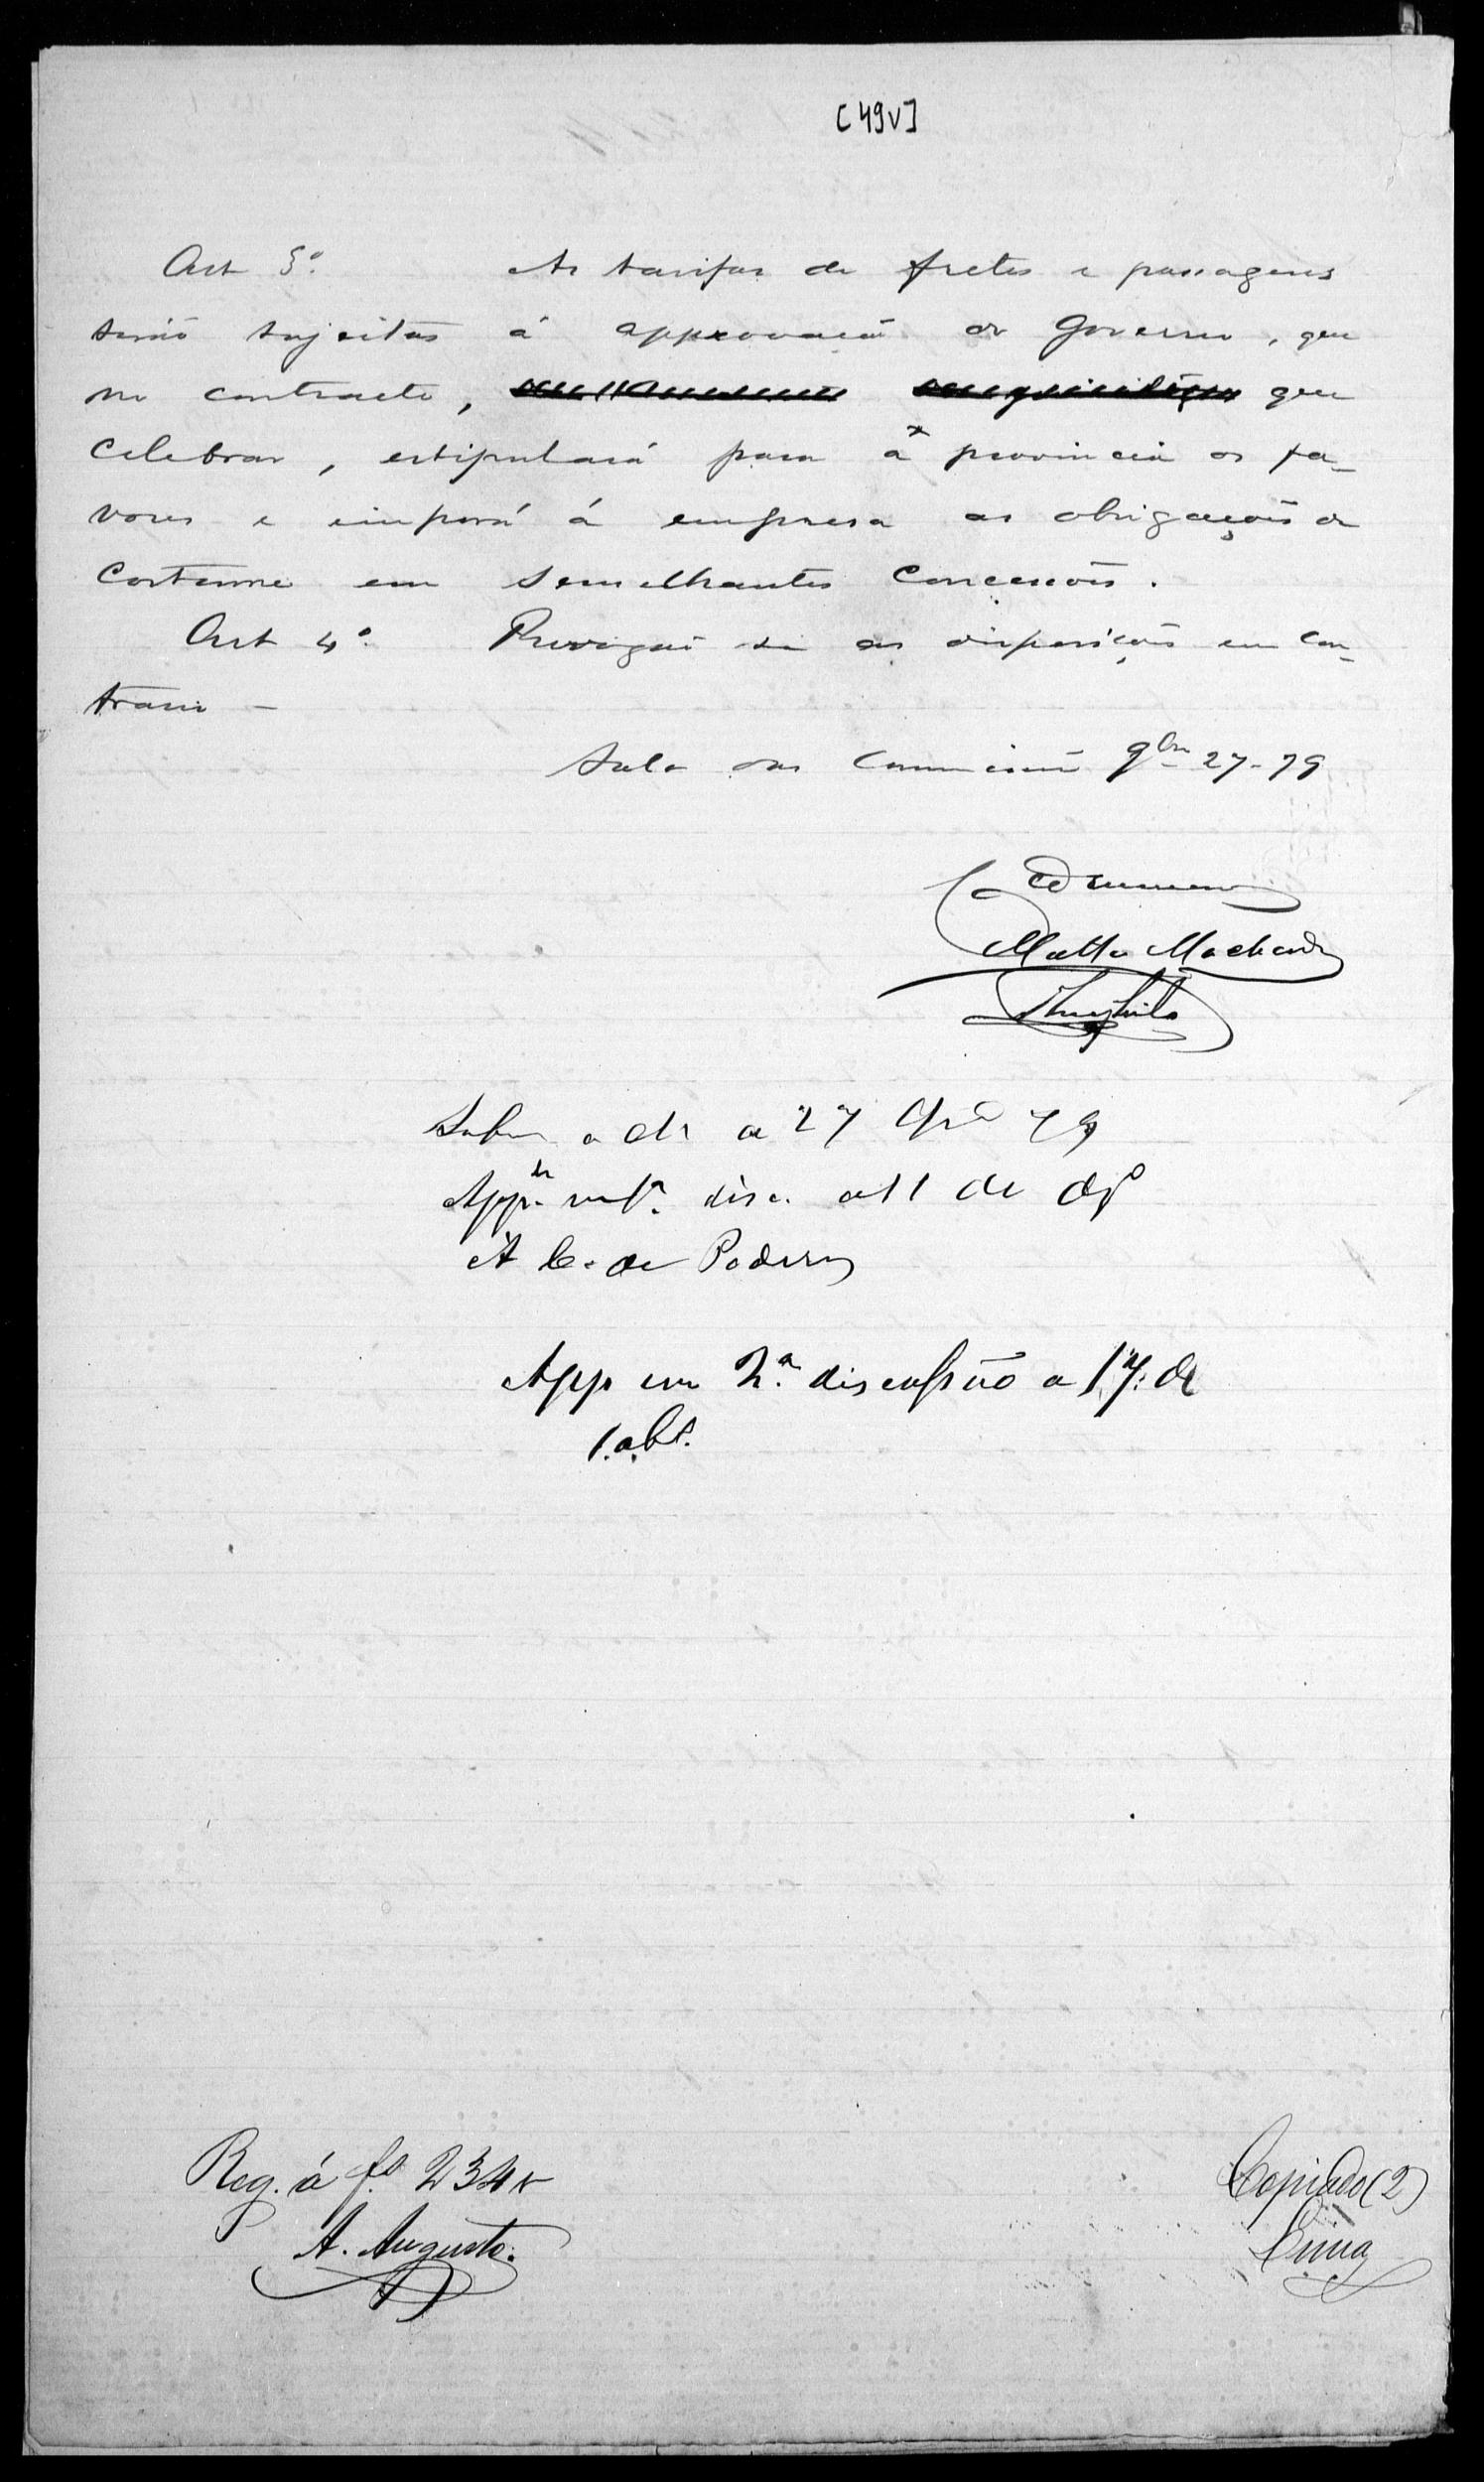 [49v]
Art 3º. As tarifas de fretes e passagens
serão sujeitas á approvação do Governo, que
no contracto, que
celebrar, estipulará para a provincia os fa-
vores e imporá á empresa as obrigações de
costume em semelhantes concessões.
Art 4º. Revogão se as disposições em con-
trario -
Sala das Commissões 9bro 27-79
Drummond
Matta Machado
a 27 9bro 79
App. em 1ª. disc. a 11 de
A C. de Poderes
App em 2.ª discussão a 17. de
Reg. á fs. 234 v
A. Augusto.
Copiado (2)